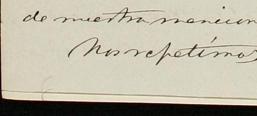 de nuestra mencion
Nos repetimos